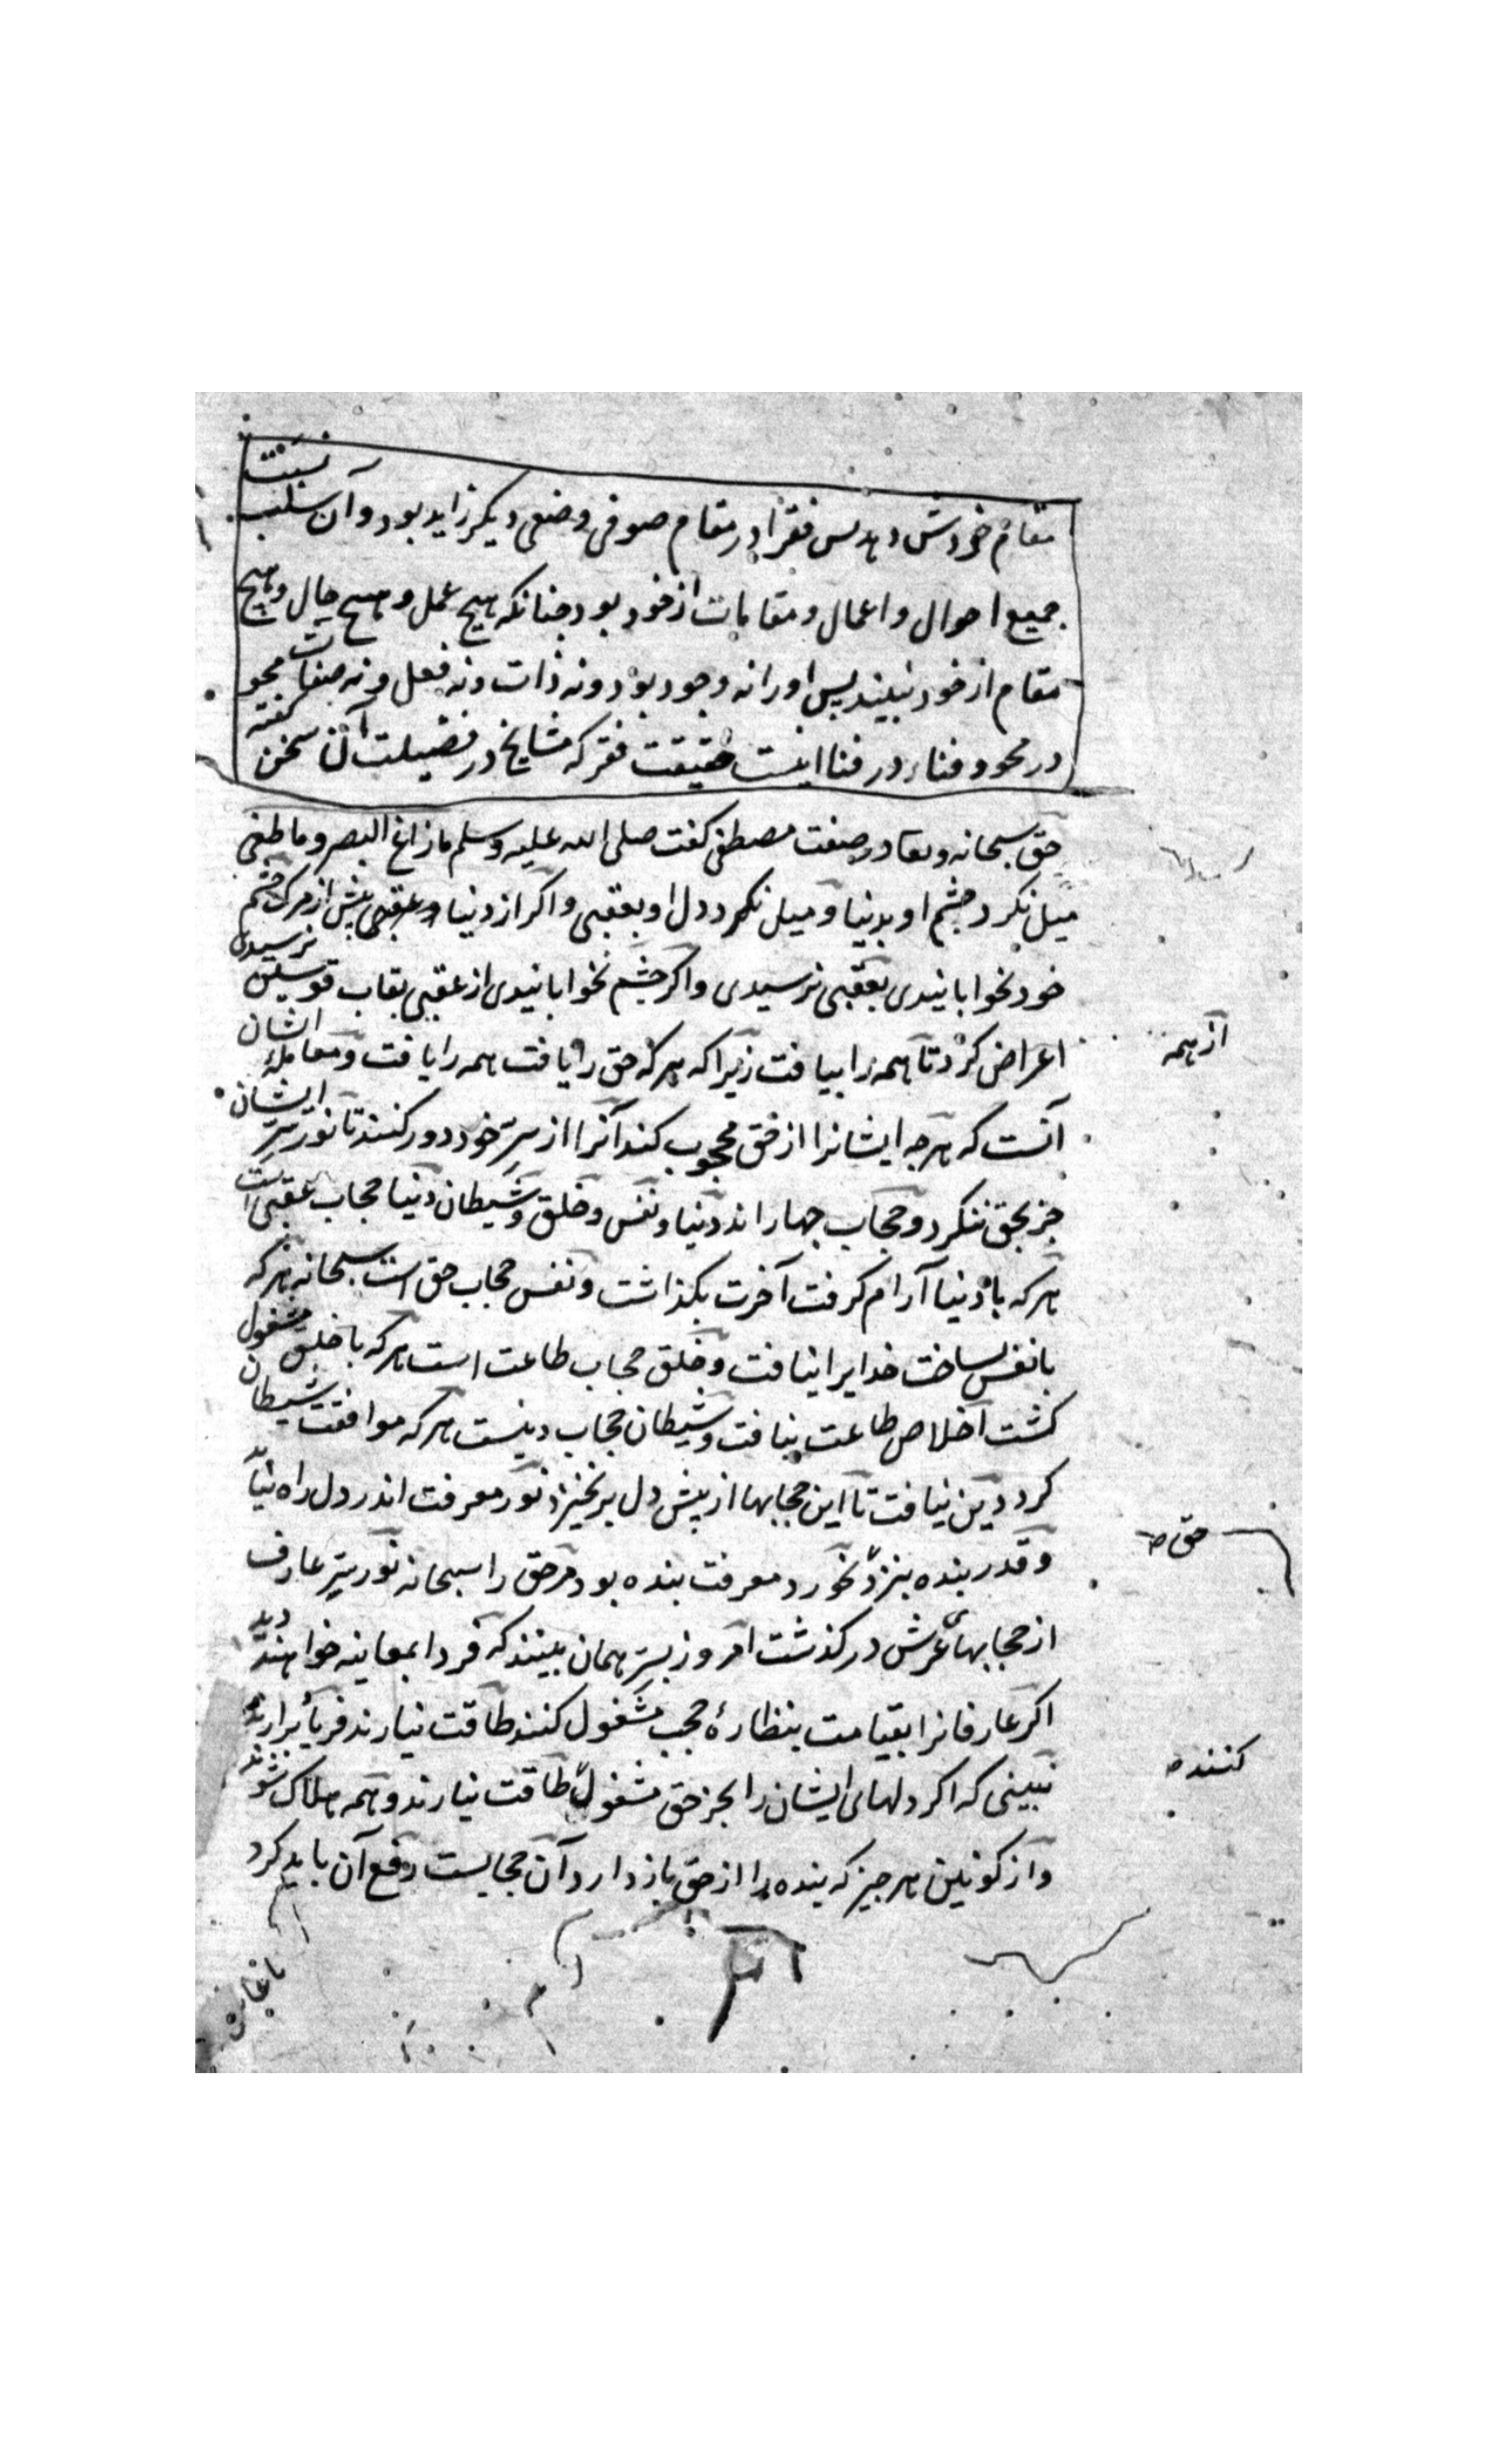 مقام خودش دهد پس فقر را در مقام صوفی وصفی دیکر زاید بود و آن سلب نسبت
جمیع احوال و اعمال و مقامات از خود بود جنانکه هیج عمل و هیج حال و هیج
مقام از خود نبیند پس او را نه وجود بود و نه ذات و نه فعل و نه صفات محو
در محو و فناء در فنا اینست حقیقت فقر که مشایخ در فضیلت آن سخن کفته
حق سبحانه و تعا در صفت مصطفی کفت صلی الله علیه وسلم ما زاغ البصر و ما طغی
میل نکرد جشم او بدنیا و میل نکرد دل او بعقبی و اکر از دنیا و عقبی بیش از مرک جشم
خود نخوابانیدی بعقبی نرسیدی و اکر جشم نخوابانیدی از عقبی بقاب قوسین نرسیدی
اعراض کرد تا همه را بیافت زیرا که هر که حق را یافت همه را یافت و معامله ایشان
از همه
آنست که هرجه ایشانرا از حق محجوب کند آنرا از سِرّ خود دور کنند تا نور سِرّ ایشان
جز بحق ننکرد و حجاب جهار اند دنیا و نفس و خلق و شیطان دنیا حجاب عقبی است
هر که با دنیا آرام کرفت آخرت بکذاشت و نفس حجاب حق است سبحانه هر که
با نفس بساخت خدایرا نیافت و خلق حجاب طاعت است هر که با خلق مشغول
کشت اخلاص طاعت نیافت و شیطان حجاب دینست هر که موافقت شیطان
کرد دین نیافت تا این حجابها از بیش دل برنخیزد نور معرفت اندر دل راه نیابد
و قدر بنده بنزد نخورد معرفت بنده بود مر حق را سبحانه نور سِرّ عارف
حق
از حجابهای عرش در کذشت امروز بسِرّ همان بینند که فردا بمعاینه خواهند دید
اکر عارفانرا بقیامت بنظارهٔ حجب مشغول کنند طاقت نیارند فریاد برارند
نبینی که اکر دلهای ایشان را بجز حق مشغول طاقت نیارند و همه هلاک شوند
کنند
و از کونین هر جیز که بنده را از حق باز دارد آن حجابست رفع آن باید کرد